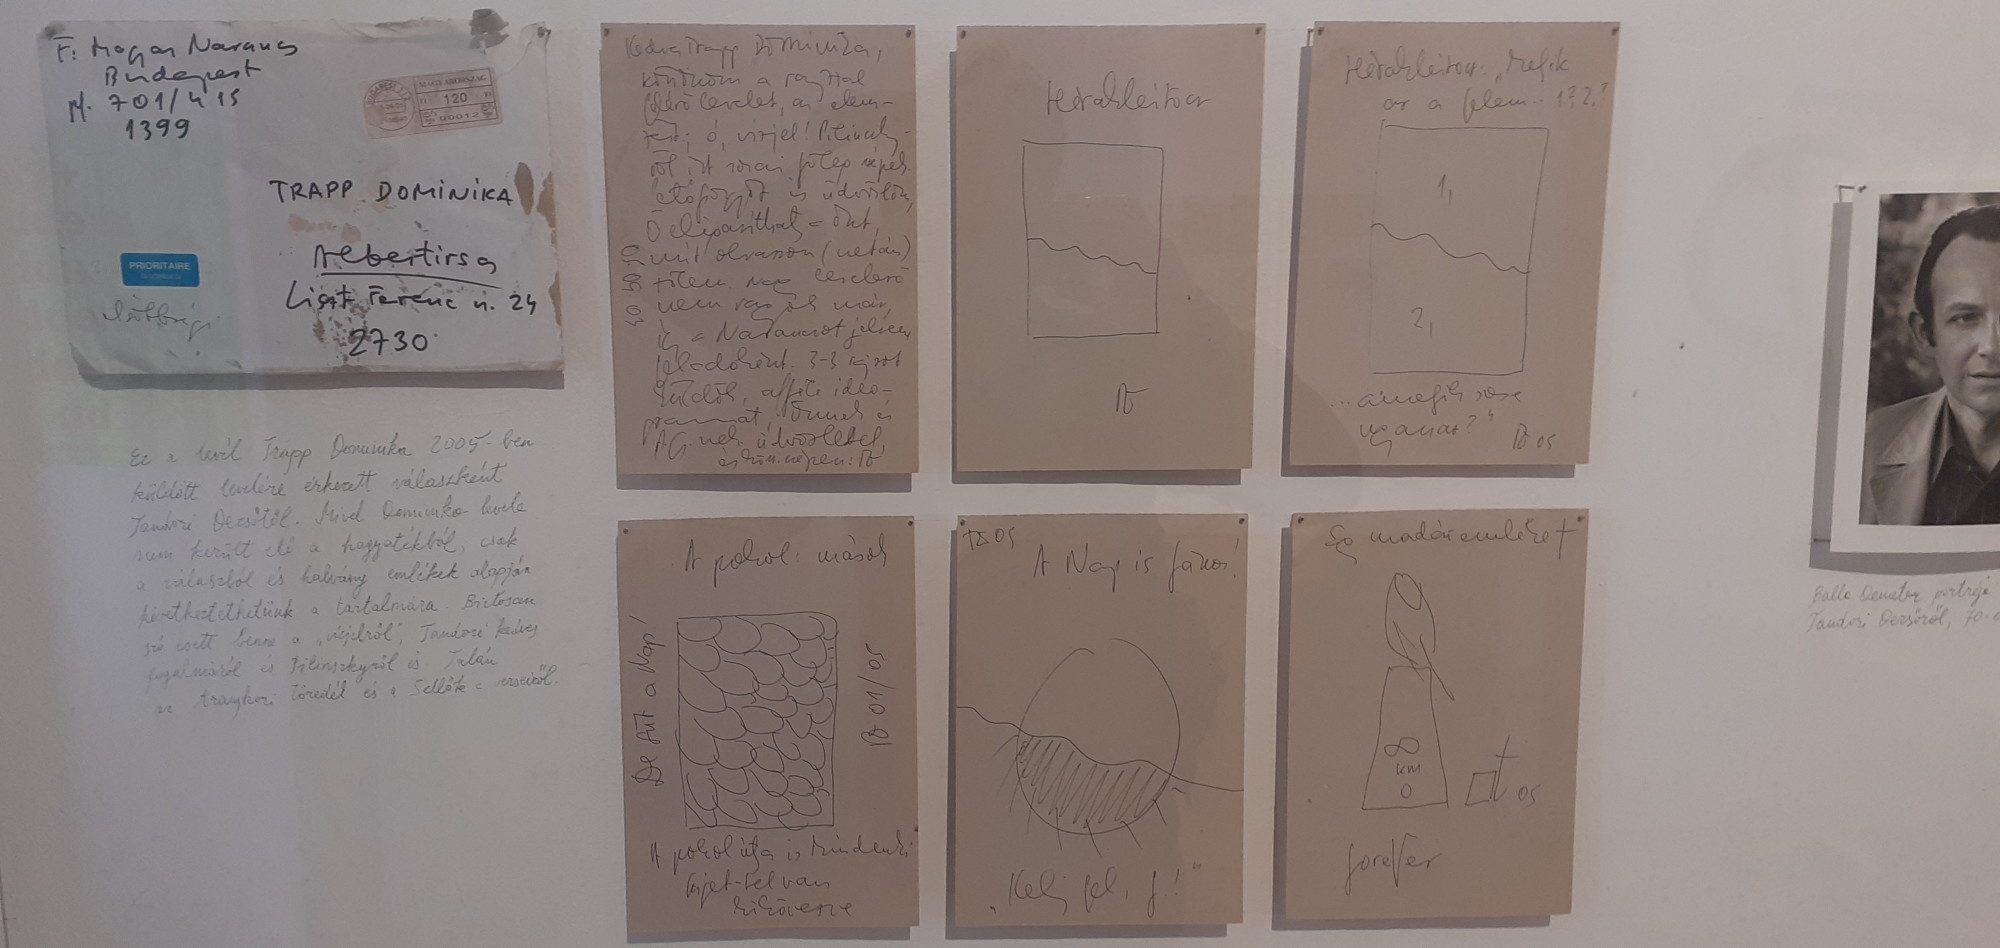 F: Magyar Narancs
Budapest
Pf. 701/415
1399
MAGYARORSZÁG
120
00012
TRAPP DOMINIKA
Albertirsa
Liszt Ferenc u. 24
2730
PRIORITAIRE
Ez a levél Trapp Dominika 2005-ben
küldött levelére érkezett válaszként
Tandori Dezsőtől. Mivel Dominika levele
nem került elő a hagyatékból, csak
a válaszból és halvány emlékek alapján
következtethetünk a tartalmára. Biztosan
szó esett benne a „vízjelről”, Tandori kedves
fogalmáról és Pilinszkyről is. Talán
az Aranykori töredék és a Sellők c. verseiről.
Kedves Trapp Dominika,
köszönöm a rajzzal
levelet, az elem-
ó, vízjel! Pilinszky-
ről írt sorai
és üdvözlöm,
Ő
mit olvasson (netán)
tőlem. Nagy levelező
nem vagyok már,
a Narancsot jelzem
feladóként. 3-3 rajzot
küldök, afféle ideo-
grammát, Önnek és
üdvözlettel,
Hérakleitosz
Hérakleitosz: „melyik
az a felem.. 1? 2?
1,
2,
...amelyik sose
ugyanaz?”
05
A pokol: mások
De süt a Nap!
01/05
A pokol útja is mindenki
van
kikövezve
05
A Nap is János!
„Kelj fel, J!”
Egy madáremlékmű
8
km
0
05
forever
Balla Demeter portréja
Tandori Dezsőről, 70-